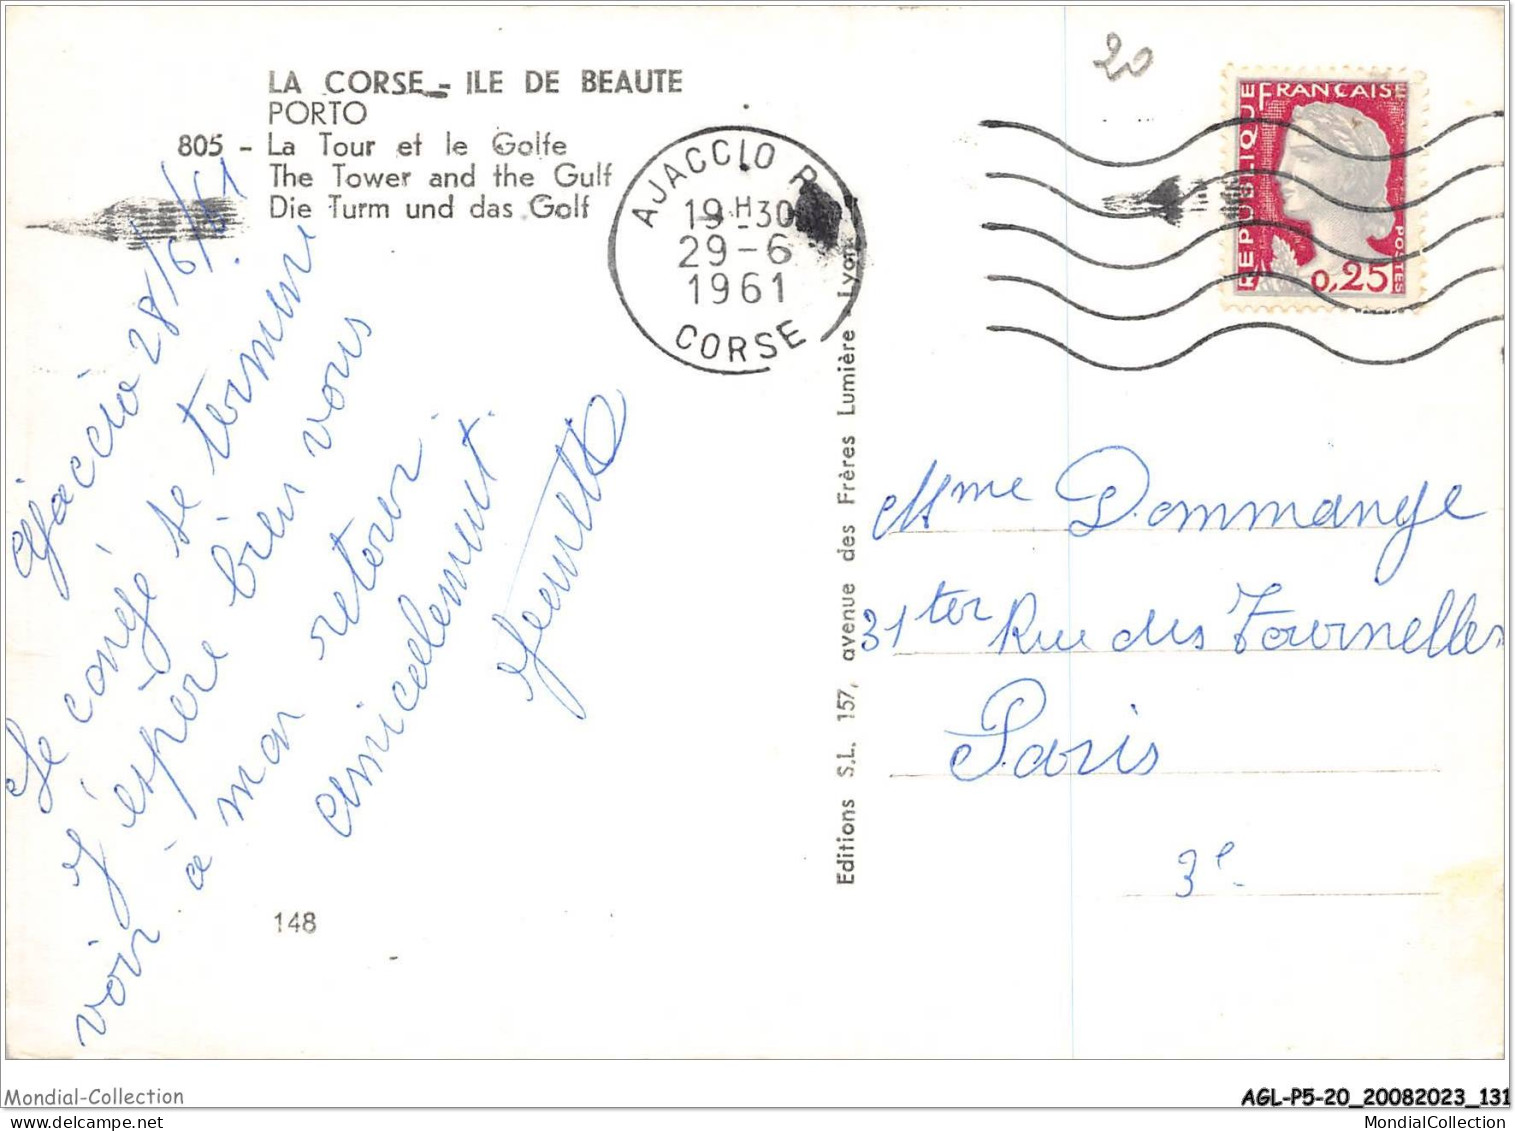 LA CORSE - ILE DE BEAUTE
PORTO
805 - La Tour et le Golfe
The Tower and the Gulf
Die Turm und das Golf
AJACCIO R.
19 H 30
29-6
1961
CORSE
20
REPUBLIQUE FRANÇAISE
POSTES
0,25
Ajaccio 28/6/61
Le congé se termine
j'espère bien vous
voir à mon retour.
amicalement.
Editions S.L. 157, avenue des Frères Lumière - Lyon
Mme Dommange
31 ter Rue des Tournelles
Paris
3e
148
Mondial-Collection
AGL-P5-20_20082023_131
MondialCollection